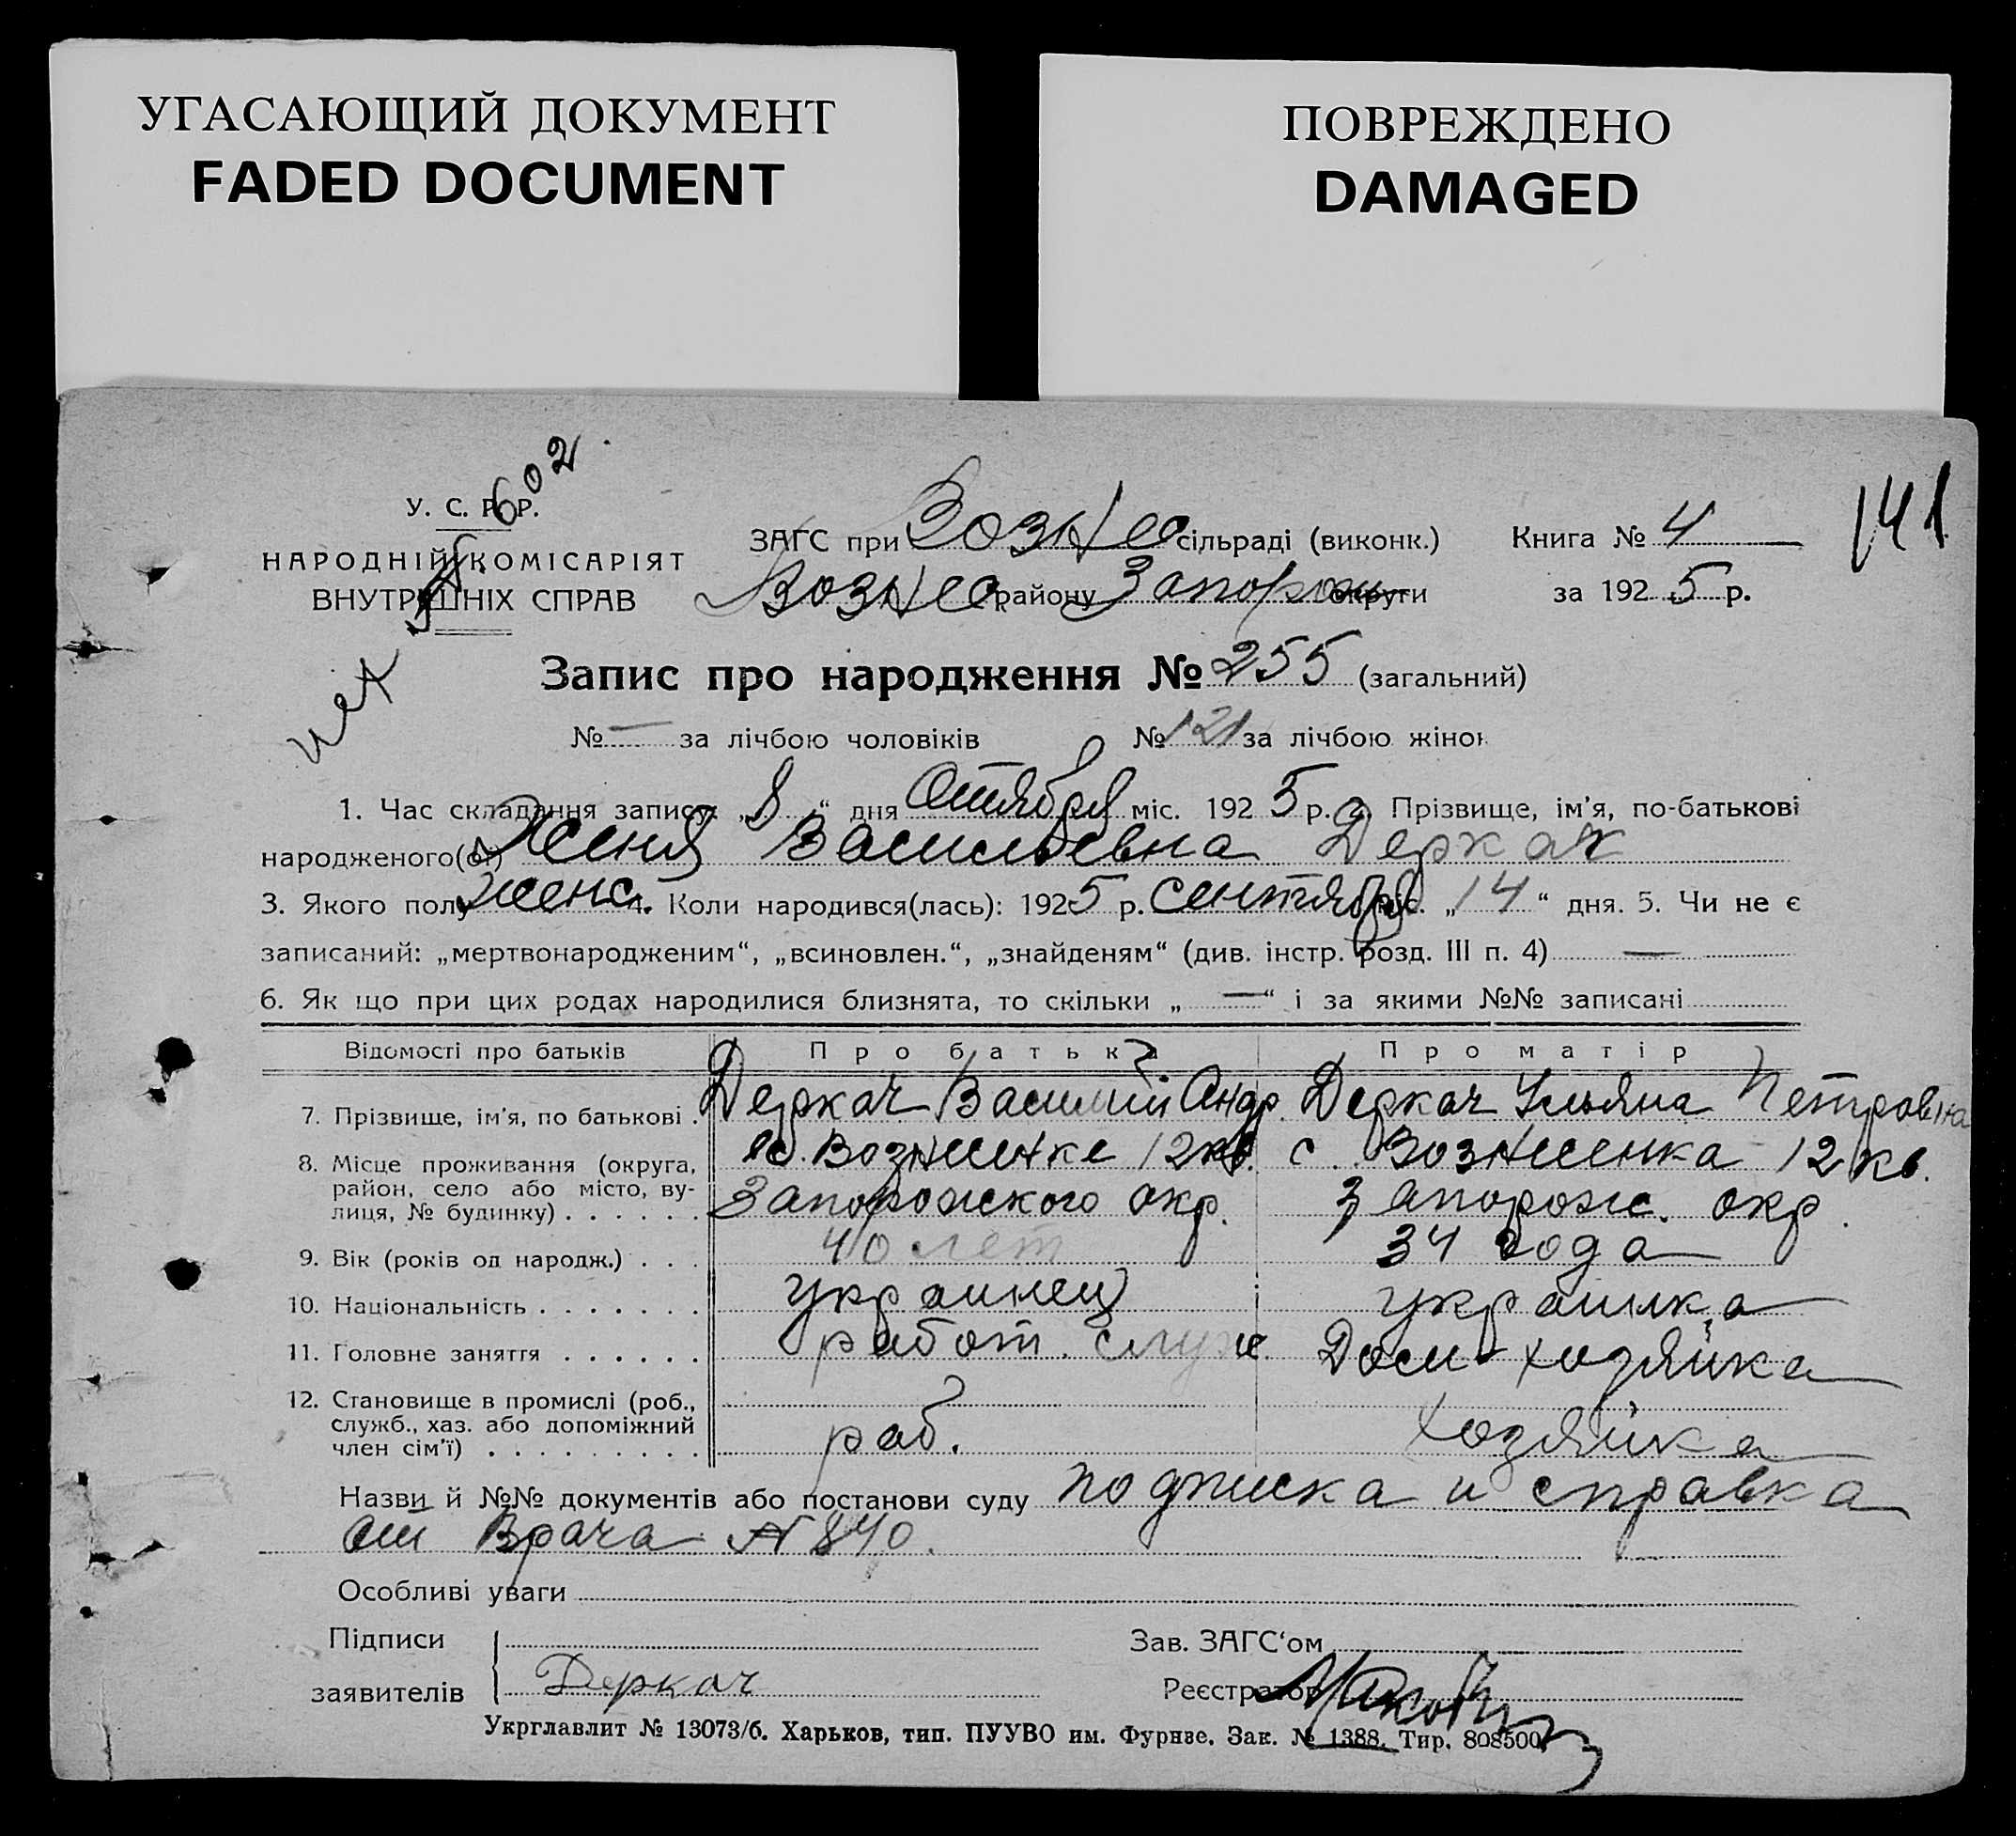 УГАСАЮЩИЙ ДОКУМЕНТ
FADED DOCUMENT
ПОВРЕЖДЕНО
DAMAGED
602
141
У. С. Р. Р.
НАРОДНІЙ КОМІСАРІЯТ
ВНУТРІШНІХ СПРАВ
нет
ЗАГС при Вознес сільраді (виконк.) Книга № 4
Вознес району Запорож округи за 1925 р.
Запис про народження № 255 (загальний)
№ — за лічбою чоловіків № 121 за лічбою жінок
1. Час складання запису: „8“ дня Октября міс. 1925 р. 2. Прізвище, ім’я, по-батькові
народженого(ої) Женя Васильевна Деркач
3. Якого полу женс. 4. Коли народився(лась): 1925 р. сентября міс. „14“ дня. 5. Чи не є
записаний: „мертвонародженим“, „всиновлен.“, „знайденям“ (див. інстр. розд. III п. 4) —
6. Як що при цих родах народилися близнята, то скільки „—“ і за якими №№ записані
Відомості про батьків Про батька Про матір
7. Прізвище, ім’я, по батькові . Деркач Василий Андр. Деркач Ульяна Петровна
8. Місце проживання (округа, с. Возненке 12 кв. с. Возненка 12 кв.
район, село або місто, ву-
лиця, № будинку) . . . . . . Запорожского окр. Запорож. окр.
9. Вік (років од народж.) . . . 40 лет 34 года
10. Національність . . . . . . . украинец украинка
11. Головне заняття . . . . . . работ. служ. Дом-хозяйка
12. Становище в промислі (роб.,
служб., хаз. або допоміжний
член сім’ї) . . . . . . . . . раб. хозяйка
Назви й №№ документів або постанови суду подписка и справка
от Врача № 840.
Особливі уваги
Підписи Зав. ЗАГС‘ом
заявителів Деркач Реєстратор
Укрглавлит № 13073/б. Харьков, тип. ПУУВО им. Фрунзе. Зак. № 1388. Тир. 808500